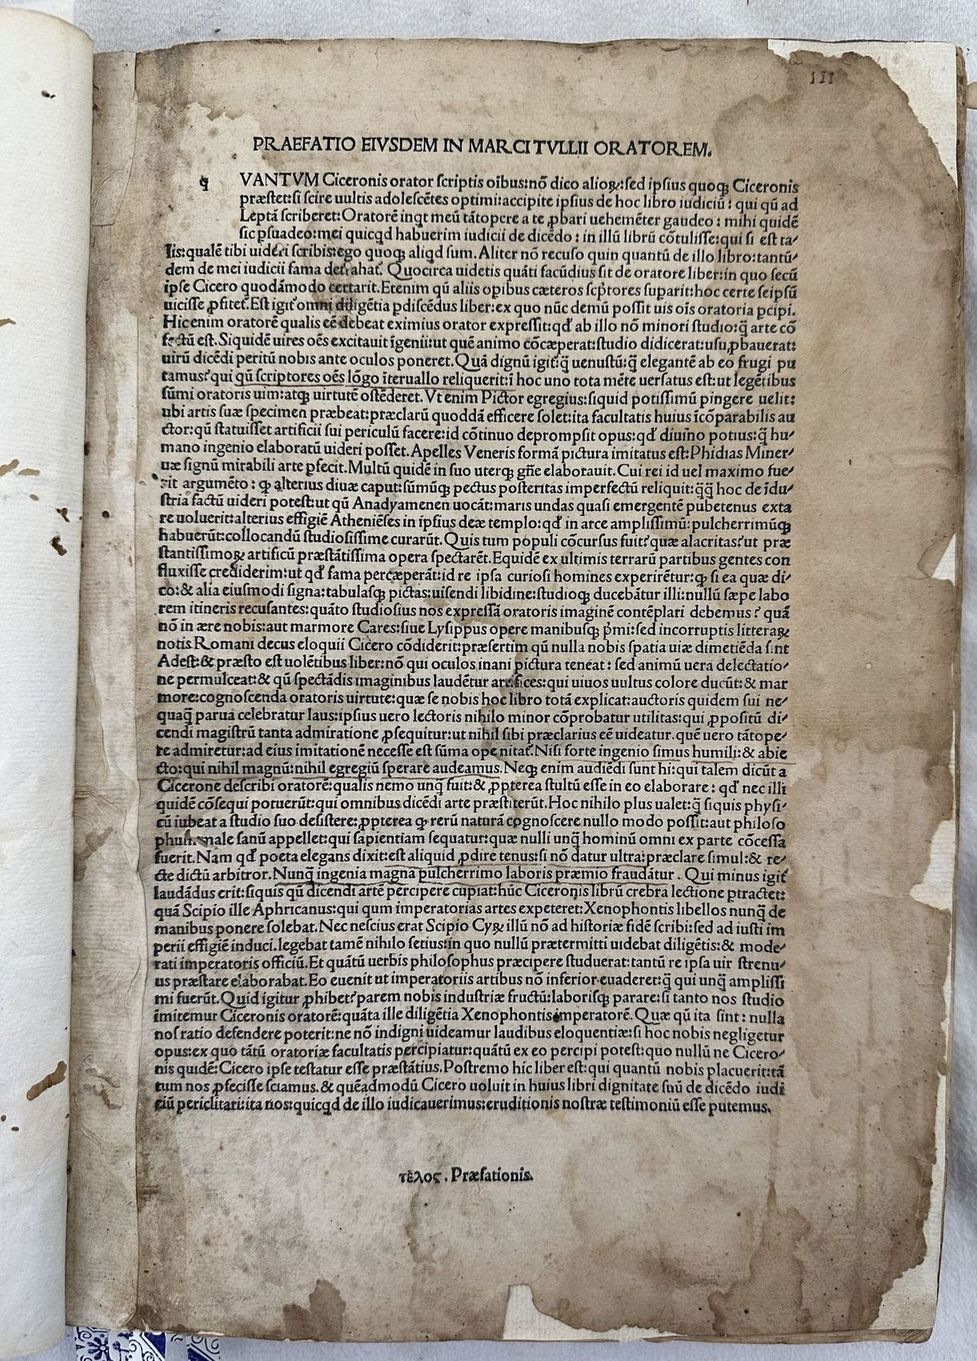 III
PRAEFATIO EIVSDEM IN MARCI TVLLII ORATOREM.
q VANTVM Ciceronis orator scriptis oı̄bus:nō dico alioꝝ:sed ipsius quoqꝫ Ciceronis
præstet:si scire uultis adolescētes optimi:accipite ipsius de hoc libro iudiciū: qui qū ad
Leptā scriberet:Oratorē inqt meū tātopere a te ꝓbari uehemēter gaudeo: mihi quidē
sic ꝑsuadeo:mei quicqd habuerim iudicii de dicēdo: in illū librū cōtulisse:qui si est ta⸗
lis:qualē tibi uideri scribis:ego quoqꝫ aliqd sum. Aliter nō recuso quin quantū de illo libro:tantū⸗
dem de mei iudicii fama detrahat̄. Quocirca uidetis quāti facūdius sit de oratore liber:in quo secū
ipse Cicero quodāmodo certarit. Etenim qū aliis opibus cæteros scp̄tores suparit:hoc certe seipsū
uicisse ꝓfitet̄. Est igit̄ omni diligētia ꝑdiscēdus liber:ex quo nūc demū possit uis oı̄s oratoria pcipi.
Hic enim oratorē qualis eē debeat eximius orator expressit:qd' ab illo nō minori studio:q̄ arte cō
fectū est. Siquidē uires oēs excitauit īgenii:ut quē animo cōcæperat:studio didicerat:usu ꝓbauerat:
uirū dicēdi peritū nobis ante oculos poneret. Quā dignū igit̄:q̄ uenustū:q̄ elegantē ab eo frugi pu
tamus?qui qū scriptores oēs lōgo īteruallo reliquerit:ī hoc uno tota mēte uersatus est:ut legētibus
sūmi oratoris uim:atqꝫ uirtutē ostēderet. Vt enim Pictor egregius:siquid potissimū pingere uelit:
ubi artis suæ specimen præbeat:præclarū quoddā efficere solet:ita facultatis huius īcōparabilis au
ctor:qū statuisset artificii sui periculū facere:id cōtinuo deprompsit opus:qd' diuino potius:q̄ hu⸗
mano ingenio elaboratū uideri posset. Apelles Veneris formā pictura imitatus est:Phidias Miner⸗
uæ signū mirabili arte ꝑfecit. Multū quidē in suo uterqꝫ gn̄e elaborauit. Cui rei id uel maximo fue⸗
rit argumēto: qꝫ alterius diuæ caput:sūmūqꝫ pectus posteritas imperfectū reliquit:q̄q̄ hoc de īdu⸗
stria factū uideri potest:ut qū Anadyamenen uocāt:maris undas quasi emergentē pubetenus exta
re uoluerit:alterius effigiē Atheniēses in ipsius deæ templo:qd' in arce amplissimū:pulcherrimūqꝫ
habuerūt:collocandū studiosissime curarūt. Quis tum populi cōcursus fuit?quæ alacritas?ut præ
stantissimoꝝ artificū præstātissima opera spectarēt. Equidē ex ultimis terrarū partibus gentes con
fluxisse crediderim:ut qd' fama percæperāt:id re ipsa curiosi homines experirētur:qꝫ si ea quæ di⸗
co:& alia eiusmodi signa:tabulasqꝫ pictas:uisendi libidine:studioqꝫ ducebātur illi:nullū sæpe labo
rem itineris recusantes:quāto studiosius nos expressā oratoris imaginē contēplari debemus? quā
nō in ære nobis:aut marmore Cares:siue Lysippus opere manibusqꝫ ꝑmi:sed incorruptis litteraꝝ
notis Romani decus eloquii Cicero cōdiderit:præsertim qū nulla nobis spatia uiæ dimetiēda sint
Adest:& præsto est uolētibus liber:nō qui oculos inani pictura teneat: sed animū uera delectatio⸗
ne permulceat:& qū spectādis imaginibus laudētur artifices:qui uiuos uultus colore ducūt:& mar
more:cognoscenda oratoris uirtute:quæ se nobis hoc libro totā explicat:auctoris quidem sui ne⸗
quaq̄ parua celebratur laus:ipsius uero lectoris nihilo minor cōprobatur utilitas:qui ꝓpositū di⸗
cendi magistrū tanta admiratione ꝓsequitur:ut nihil sibi præclarius eē uideatur. quē uero tātope⸗
re admiretur:ad eius imitationē necesse est sūma ope nitat̄. Nisi forte ingenio simus humili:& abie
cto:qui nihil magnū:nihil egregiū sperare audeamus. Neqꝫ enim audiēdi sunt hi:qui talem dicūt a
Cicerone describi oratorē:qualis nemo unq̄ fuit:& ꝓpterea stultū esse in eo elaborare: qd' nec illi
quidē cōsequi potuerūt:qui omnibus dicēdi arte præstiterūt. Hoc nihilo plus ualet:q̄ siquis physi⸗
cū iubeat a studio suo desistere:ꝓpterea qꝫ rerū naturā cognoscere nullo modo possit:aut philoso
phum male sanū appellet:qui sapientiam sequatur:quæ nulli unq̄ hominū omni ex parte cōcessa
fuerit. Nam qd' poeta elegans dixit:est aliquid ꝓdire tenus:si nō datur ultra:præclare simul:& re⸗
cte dictū arbitror. Nunq̄ ingenia magna pulcherrimo laboris præmio fraudātur. Qui minus igit̄
laudādus erit:siquis qū dicendi artē percipere cupiat:hūc Ciceronis librū crebra lectione ꝑtractet:
quā Scipio ille Aphricanus:qui qum imperatorias artes expeteret:Xenophontis libellos nunq̄ de
manibus ponere solebat. Nec nescius erat Scipio Cyꝝ illū nō ad historiæ fidē scribi:sed ad iusti im
perii effigiē induci. legebat tamē nihilo setius:in quo nullū prætermitti uidebat diligētis:& mode⸗
rati imperatoris officiū. Et quātū uerbis philosophus præcipere studuerat:tantū re ipsa uir strenu⸗
us præstare elaborabat. Eo euenit ut imperatoriis artibus nō inferior euaderet:q̄ qui unq̄ amplissi
mi fuerūt. Quid igitur ꝓhibet?parem nobis industriæ fructū:laborisqꝫ parare:si tanto nos studio
imitemur Ciceronis oratorē:quāta ille diligētia Xenophontis imperatorē. Quæ qū ita sint: nulla
nos ratio defendere poterit:ne nō indigni uideamur laudibus eloquentiæ:si hoc nobis negligetur
opus:ex quo tātū oratoriæ facultatis percipiatur:quātū ex eo percipi potest:quo nullū ne Cicero⸗
nis quidē:Cicero ipse testatur esse præstātius. Postremo hic liber est:qui quantū nobis placuerit:tā
tum nos ꝓfecisse sciamus. & quēadmodū Cicero uoluit in huius libri dignitate suū de dicēdo iudi
ciū periclitari:ita nos:quicqd de illo iudicauerimus:eruditionis nostræ testimoniū esse putemus.
τέλος. Præfationis.